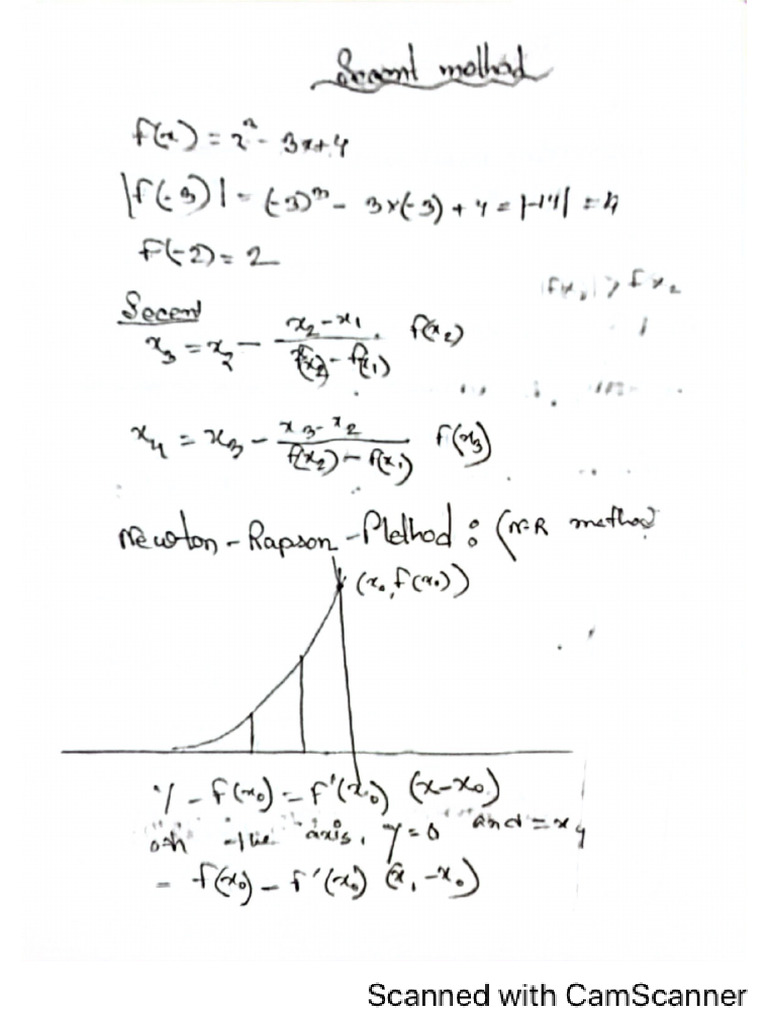 Secent method
f(x) = x³ - 3x+4
|f(-3)| = (-3)³ - 3×(-3) + 4 = |-14| = 14
f(-2) = 2
|fx₁| > fx₂
Secent
x₃ = x₂ - (x₂-x₁)/(f(x₂) - f(x₁)) . f(x₂)
x₄ = x₃ - (x₃-x₂)/(f(x₂) - f(x₁)) f(x₃)
Newton - Rapson - Method : (N-R method
(x₀, f(x₀))
y - f(x₀) = f'(x₀) (x-x₀)
the axis, y=0 and = x₁
- f(x₀) = f'(x₀) (x₁-x₀)
Scanned with CamScanner